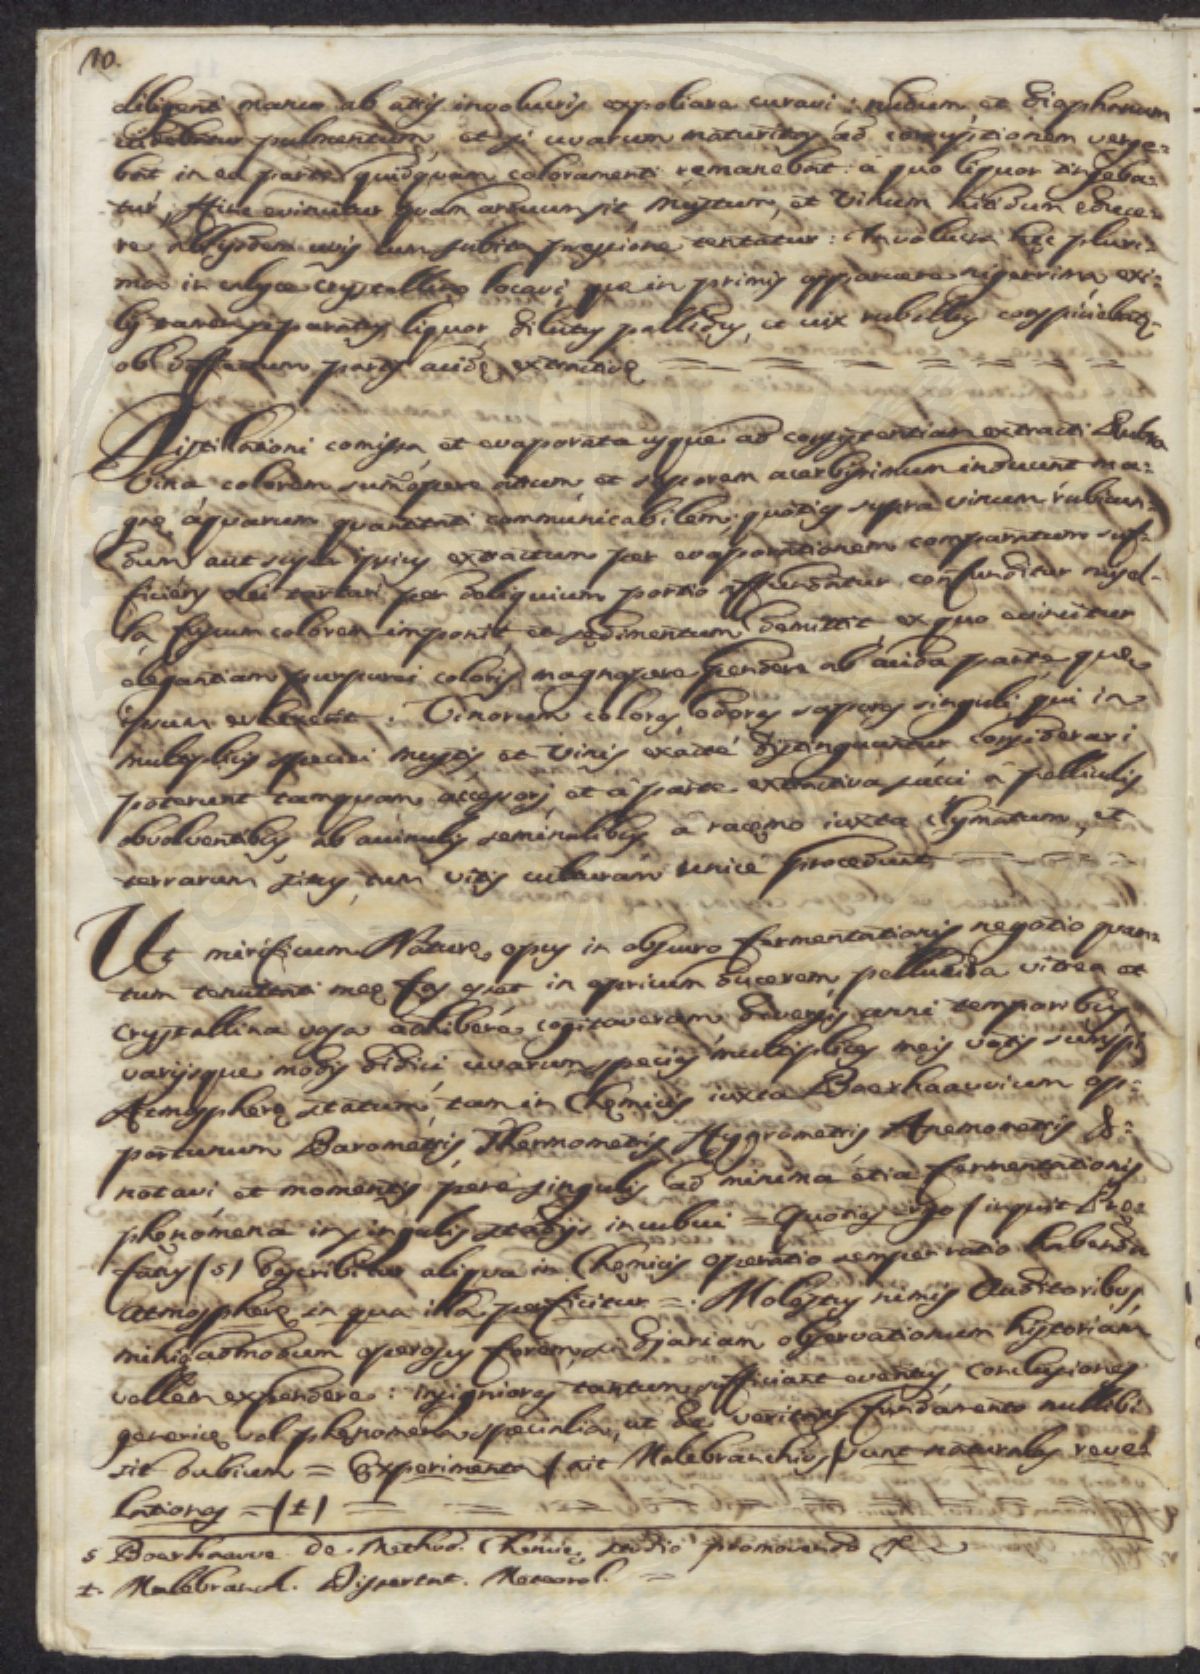 10.
diligenti manu ab atris involucris expoliare curavi: nudum et diaphanum
videbatur pulmentum, et si uvarum maturitas ad corruptionem verge-
bat in ea parte quidquam coloramenti remanebat: a quo liquor tingeba-
tur, Hinc evincitur quam arduum sit Mustum, et Vinum nitidum educe-
re ab uvis cum subita pressione tentatur: Involucra hęc pluri-
ma in calyce Crystallino locavi, quę in primis apparuere nigerrima, exi-
lis tamen separatus liquor, dilutus pallidus, et vix rubellus conspiciebat
ob deffectum partis avidę extractivę = = = = = = = =
Distillationi comissa, et evaporata usque ad consistentiam extracti Rubra
Vina colorem sumopere atrum, et saporem acerbissimum induunt ma-
gnę aquarum quantitati communicabilem; quoties supra vinum rubicun-
dum aut supra ipsius extractum per evaporationem comparatum suf-
ficiens olei tartari per deliquium portio affundatur, confunditur
fuscum colorem imponit et sedimentum demittit, ex quo evincitur
elegantiam purpurei coloris magnopere pendere ab avida parte, quę
ipsum evehit. Vinorum colores odores sapores singuli, qui in
multiplicis speciei Mustis et Vinis exacte distinguuntur, considerari
poterunt tamquam accessorij, et a parte extractiva succi a pelliculis
obvolventibus ab acinulis seminalibus a racęmo iuxta Clymatum, et
terrarum situs, tum vitis culturam unice procedunt
Ut mirificum Naturę opus in obscuro fermentationis negotio quan-
tum tenuitati meę fas erat in apricum ducerem pellucida vitrea et
Crystallina vasa adhibere cogitaveram diversis anni temporibus
varijsque modis didici uvarum species multiplices meis votis
Atmospherę statum tam in Chemicis iuxta Boerhaavvium op-
portunum Barometris Thermometris Hygrometris Anemometris &
notavi et momentis pene singulis ad minima etia fermentationis
phęnomena in singulis stadijs incubui = Quoties ergo (inquit Pre-
fatus (s) describitur aliqua in Chęmicis operatio semper ratio habenda
Atmospherę in qua illa perficitur = Molestus nimis Auditoribus,
mihi admodum operosus forem, si diariam observationum historiam
vellem expendere: insigniores tantum sufficiant eventus, conclusiones
generice vel phęnomena specialia, ut de veritatis fundamento nullibi
sit dubium = Experimenta (ait Malebranchius) sunt naturales reve-
lationes = (t) = = = = = =
s Boerhaavve de Method. Chemię studio promovendo
t. Malebranch. Dissertat. Meteorol. =